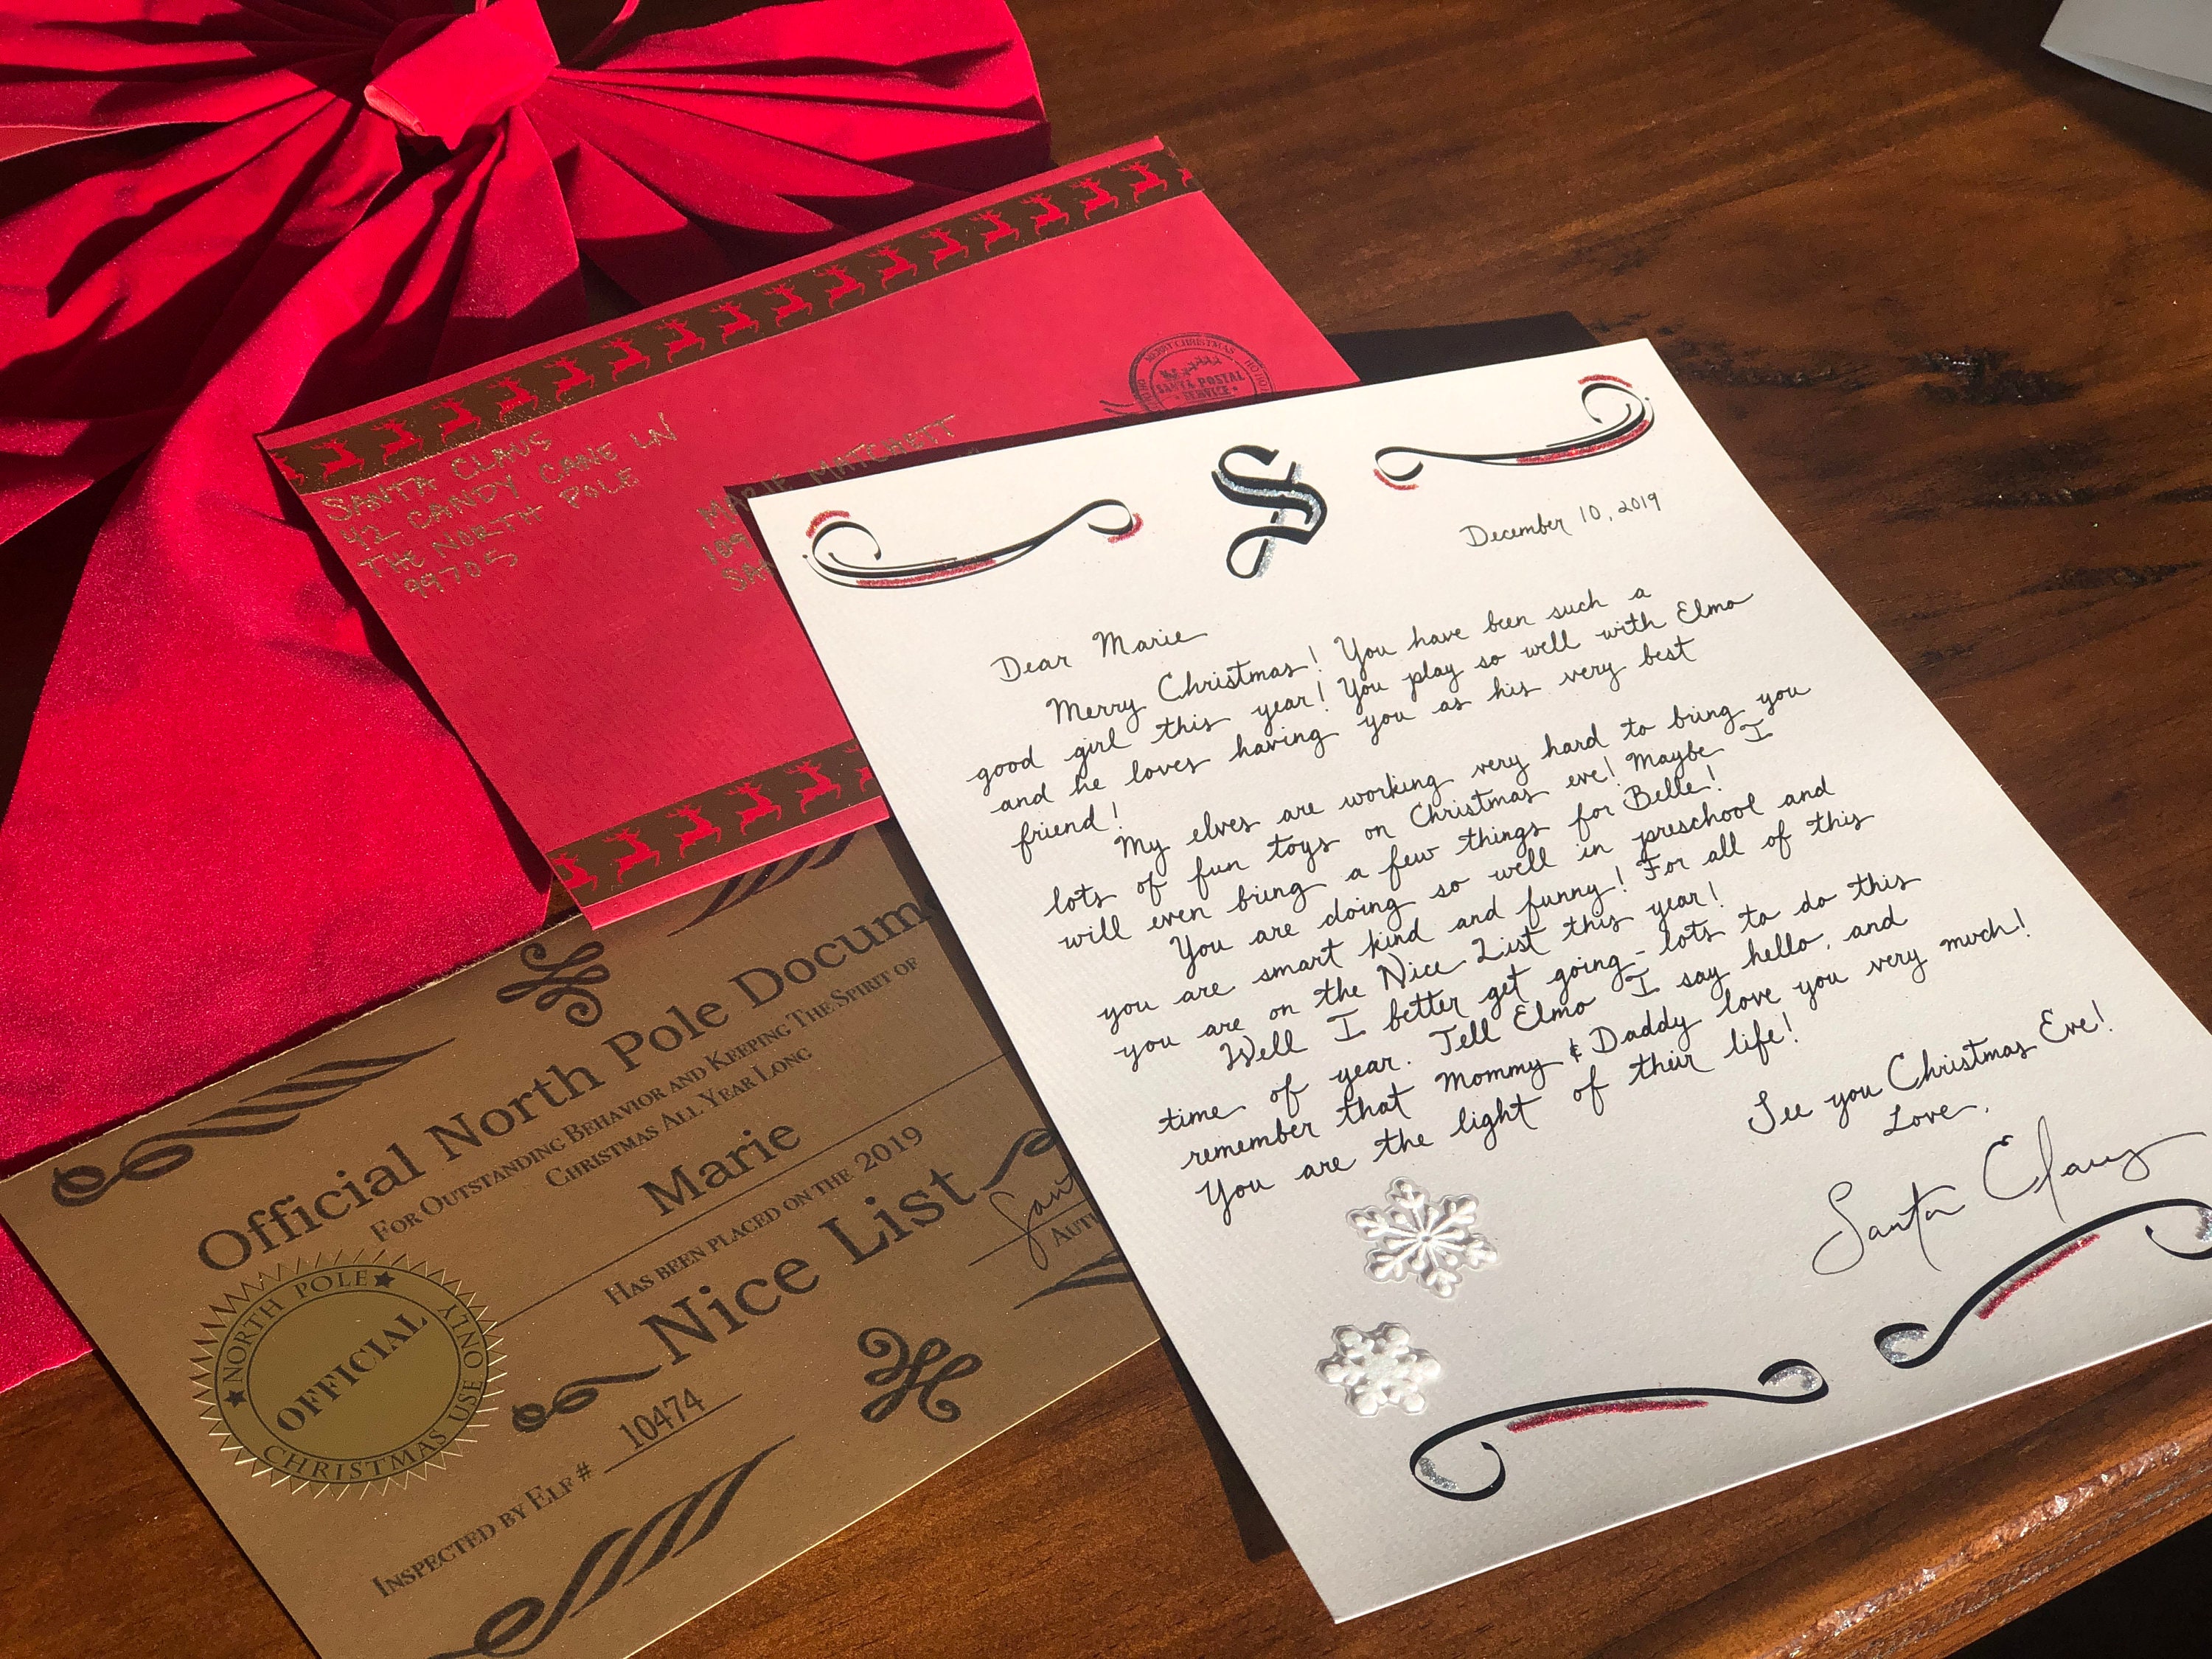 SANTA CLAUS
42 CANDY CANE LN
THE NORTH POLE
99705
MARIE MATCHETT
109
SAN
MERRY CHRISTMAS
SANTA POSTAL
SERVICE
S
December 10, 2019
Dear Marie
Merry Christmas! You have been such a
good girl this year! You play so well with Elmo
and he loves having you as his very best
friend!
My elves are working very hard to bring you
lots of fun toys on Christmas eve! Maybe I
will even bring a few things for Belle!
You are doing so well in preschool and
you are smart kind and funny! For all of this
you are on the Nice List this year!
Well I better get going - lots to do this
time of year. Tell Elmo I say hello, and
remember that Mommy & Daddy love you very much!
You are the light of their life!
See you Christmas Eve!
Love,
Santa Claus
Official North Pole Docum
For Outstanding Behavior and Keeping The Spirit of
Christmas All Year Long
Marie
Has been placed on the 2019
Nice List
Sant
Auth
NORTH POLE
OFFICIAL
CHRISTMAS USE ONLY
Inspected by Elf # 10474